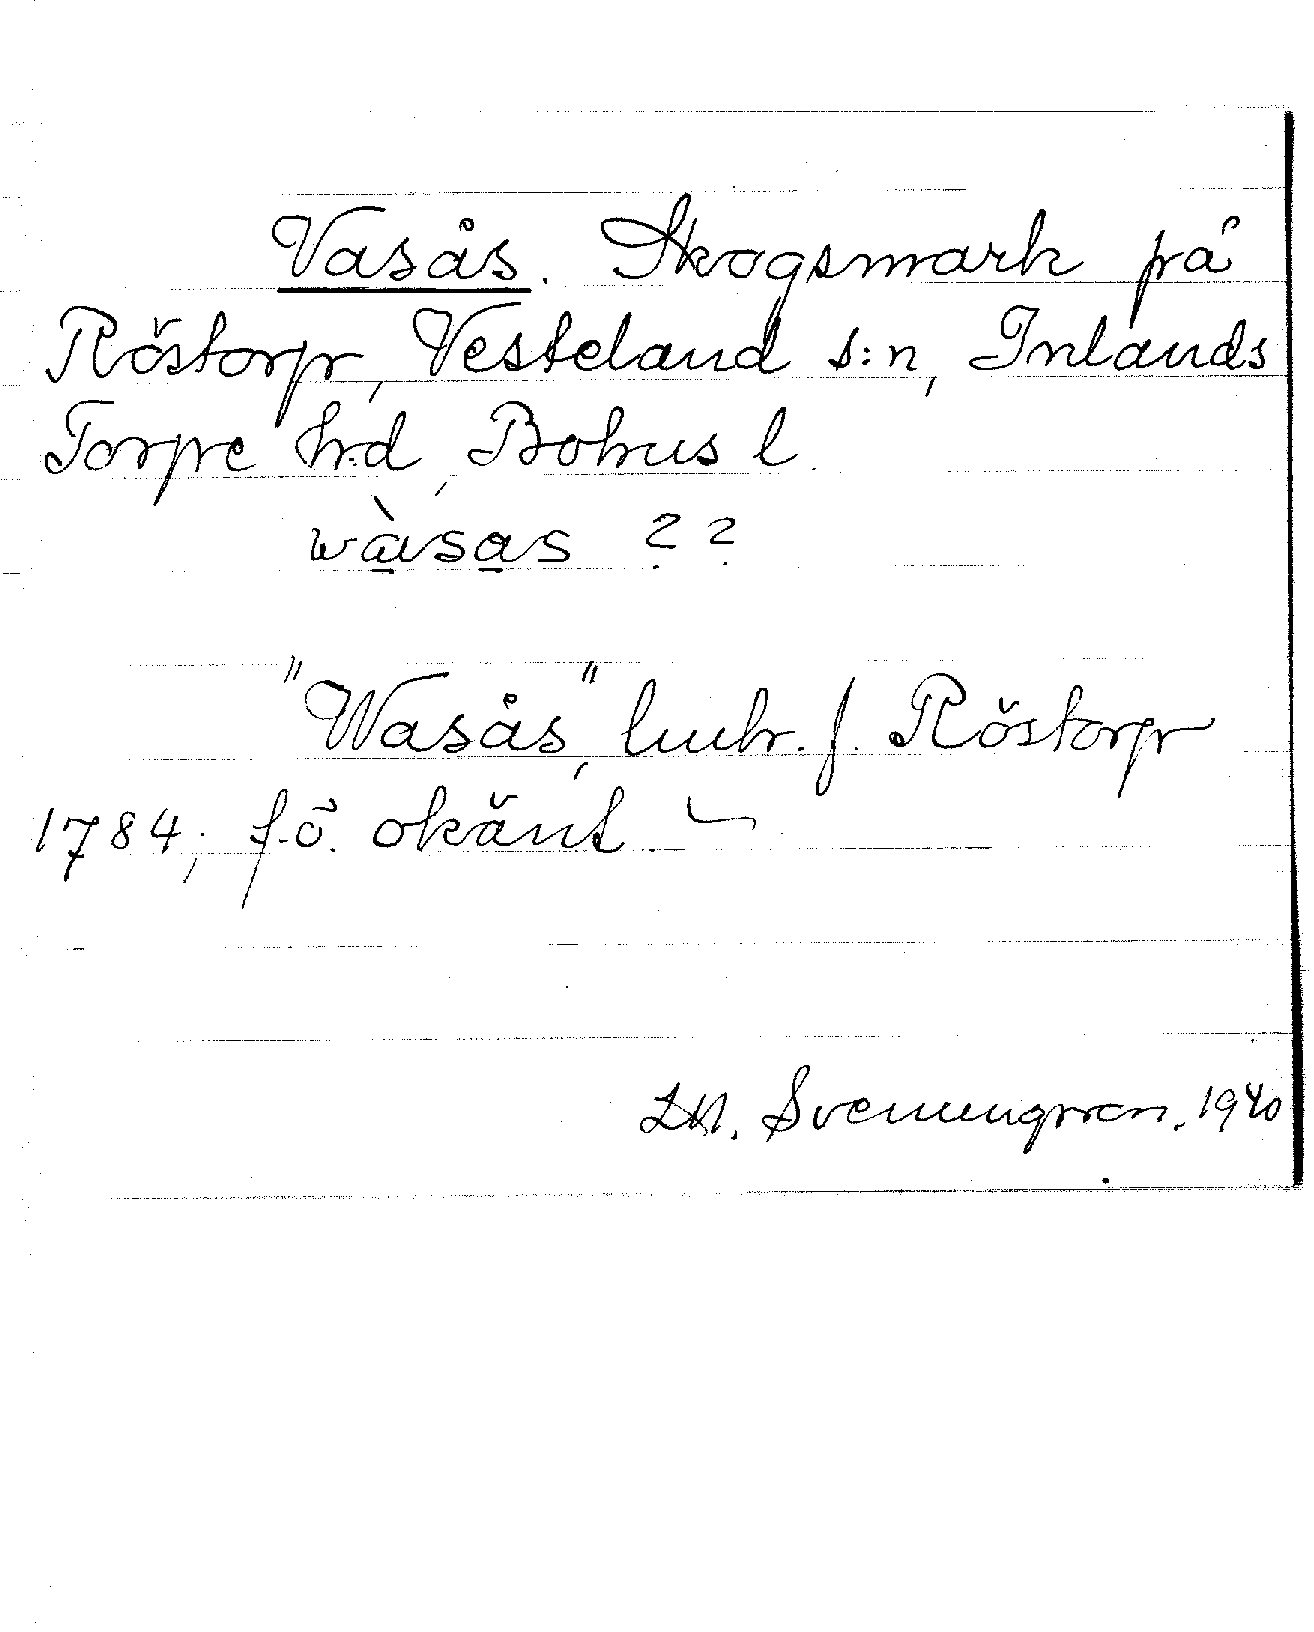 Vasås. Skogsmark på
Röstorp, Vesteland s:n, Inlands
Torpe h:d, Bohus l.
wàsas ??
"Wasås", lmhr. f. Röstorp
1784; f.ö. okänt
Svenungsson. 1940